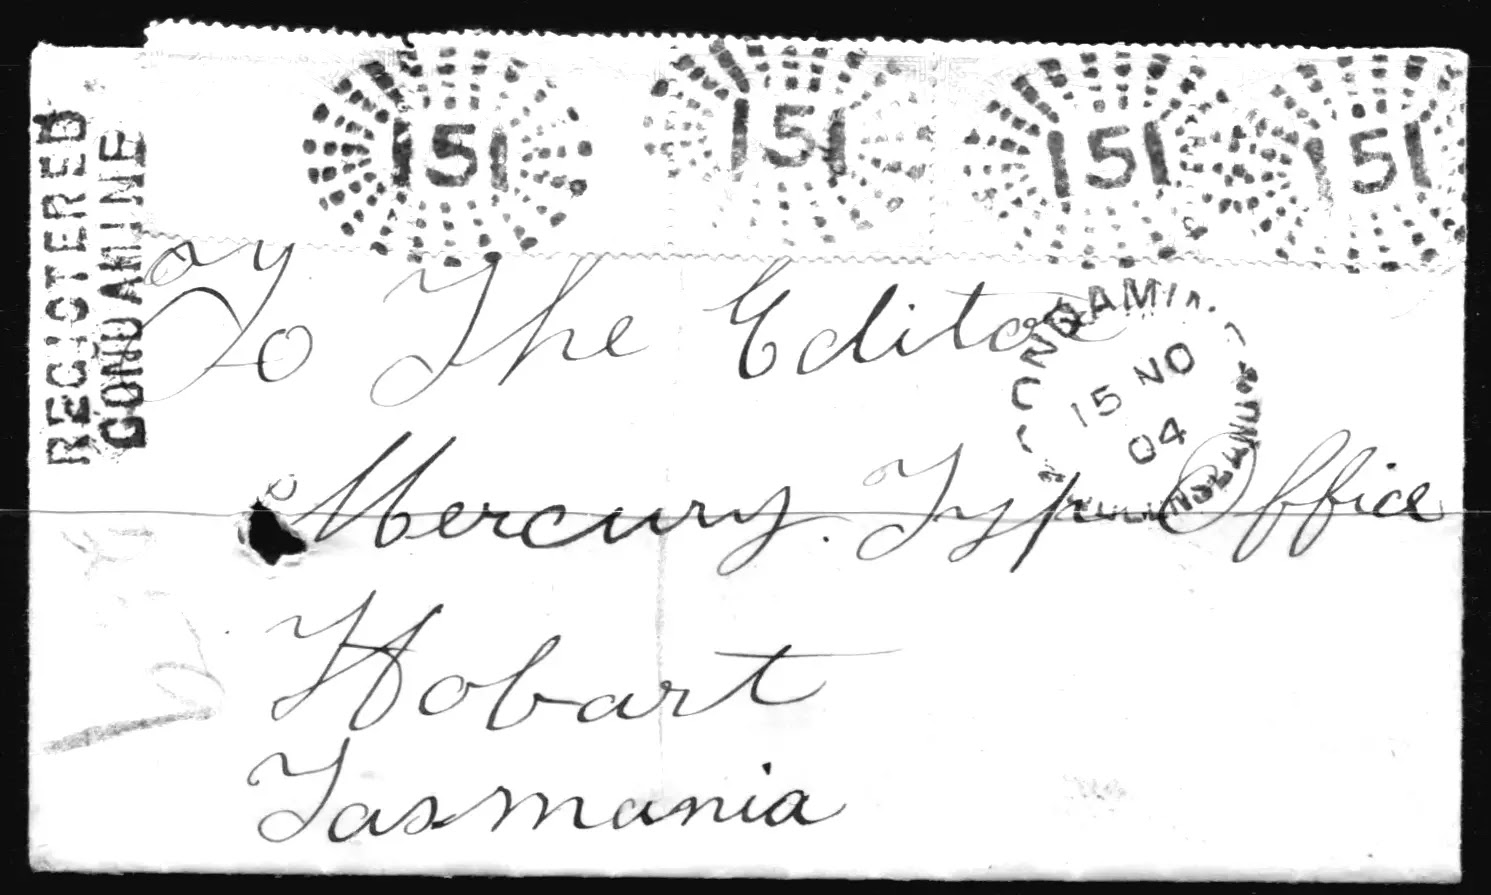 151 151 151 151
REGISTERED
CONDAMINE
To The Editor
CONDAMIN
15 NO
04
QUEENSLAND
Mercury. Typ Office
Hobart
Tasmania